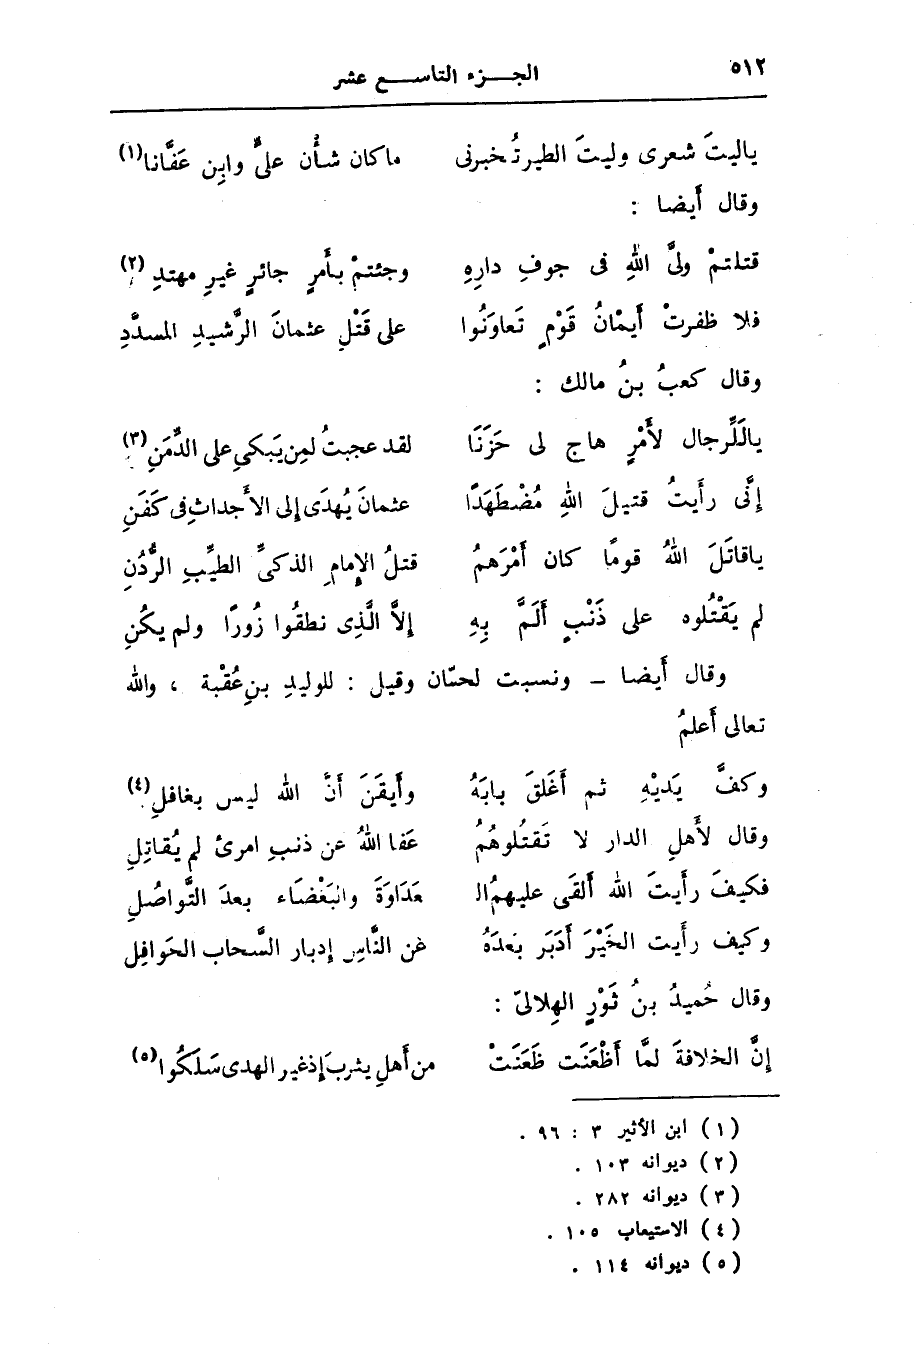 ٥١٢
الجــزء التاســع عشر
ياليتَ شعرى وليتَ الطيرتُخبرنى ماكان شأْن علىٍّ وابن عَفَّانا(١)
وقال أَيضا :
قتلتمْ ولىَّ اللهِ فى جوفِ دارِهِ وجئتمْ بأَمرٍ جائرٍ غيرِ مهتدِ(٢)
فلا ظفرتْ أَيمْانُ قَوْمٍ تَعاوَنُوا على قَتْلِ عثمانَ الرَّشيدِ المسدَّدِ
وقال كعبُ بنُ مالك :
يالَلرِّجال لأَمْرٍ هاج لى حَزَنَا لقد عجبتُ لمِن يَبكىِ على الدِّمَنِ(٣)
إنَّى رأَيتُ قتيلَ اللهِ مُضْطَهَدًا عثمانَ يُهدَى إلى الأَجداثِ فى كَفَنِ
ياقاتَلَ اللهُ قومًا كان أَمْرَهمُ قتلُ الإمامِ الذكىِّ الطيِّبِ الرُّدُنِ
لم يَقْتُلوه على ذَنْبٍ أَلَمَّ بِهِ إلاَّ الَّذِى نطقُوا زُورًا ولم يكُنِ
وقال أَيضا – ونسبت لحسّان وقيل : للوليدِ بنِ عُقْبة ، والله
تعالى أَعلمُ
وكفَّ يَديْهِ ثم أَغَلقَ بابَهُ وأَيقَنَ أَنَّ الله ليس بغافلِ(٤)
وقال لأَهلِ الدار لا تَقتُلوهُمُ عَفا اللهُ عن ذنبِ امرئ لم يُقاتِلِ
فكيفَ رأَيتَ الله أَلقَى عليهمُ الـ عَدَاوَةَ والبَغْضَاء بعدَ التَّواصُلِ
وكيف رأَيت الخَيْرَ أَدَبَر بَعدَهُ عَن النَّاسِ إدبار السَّحاب الحَوافِل
وقال حُميدُ بنُ ثَوْرٍ الهِلالىّ :
إنَّ الخلافةَ لمَّا أَظْعَنَت ظَعَنَتْ من أَهلِ يثربَ إذغير الهدى سَلَكُوا(٥)
(١) ابن الأثير ٣ : ٩٦ .
(٢) ديوانه ١٠٣ .
(٣) ديوانه ٢٨٢ .
(٤) الاستيعاب ١٠٥ .
(٥) ديوانه ١١٤ .